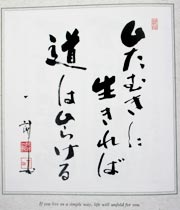 ひたむきに
生きれば
道はひらける
If you live in a simple way, life will unfold for you.